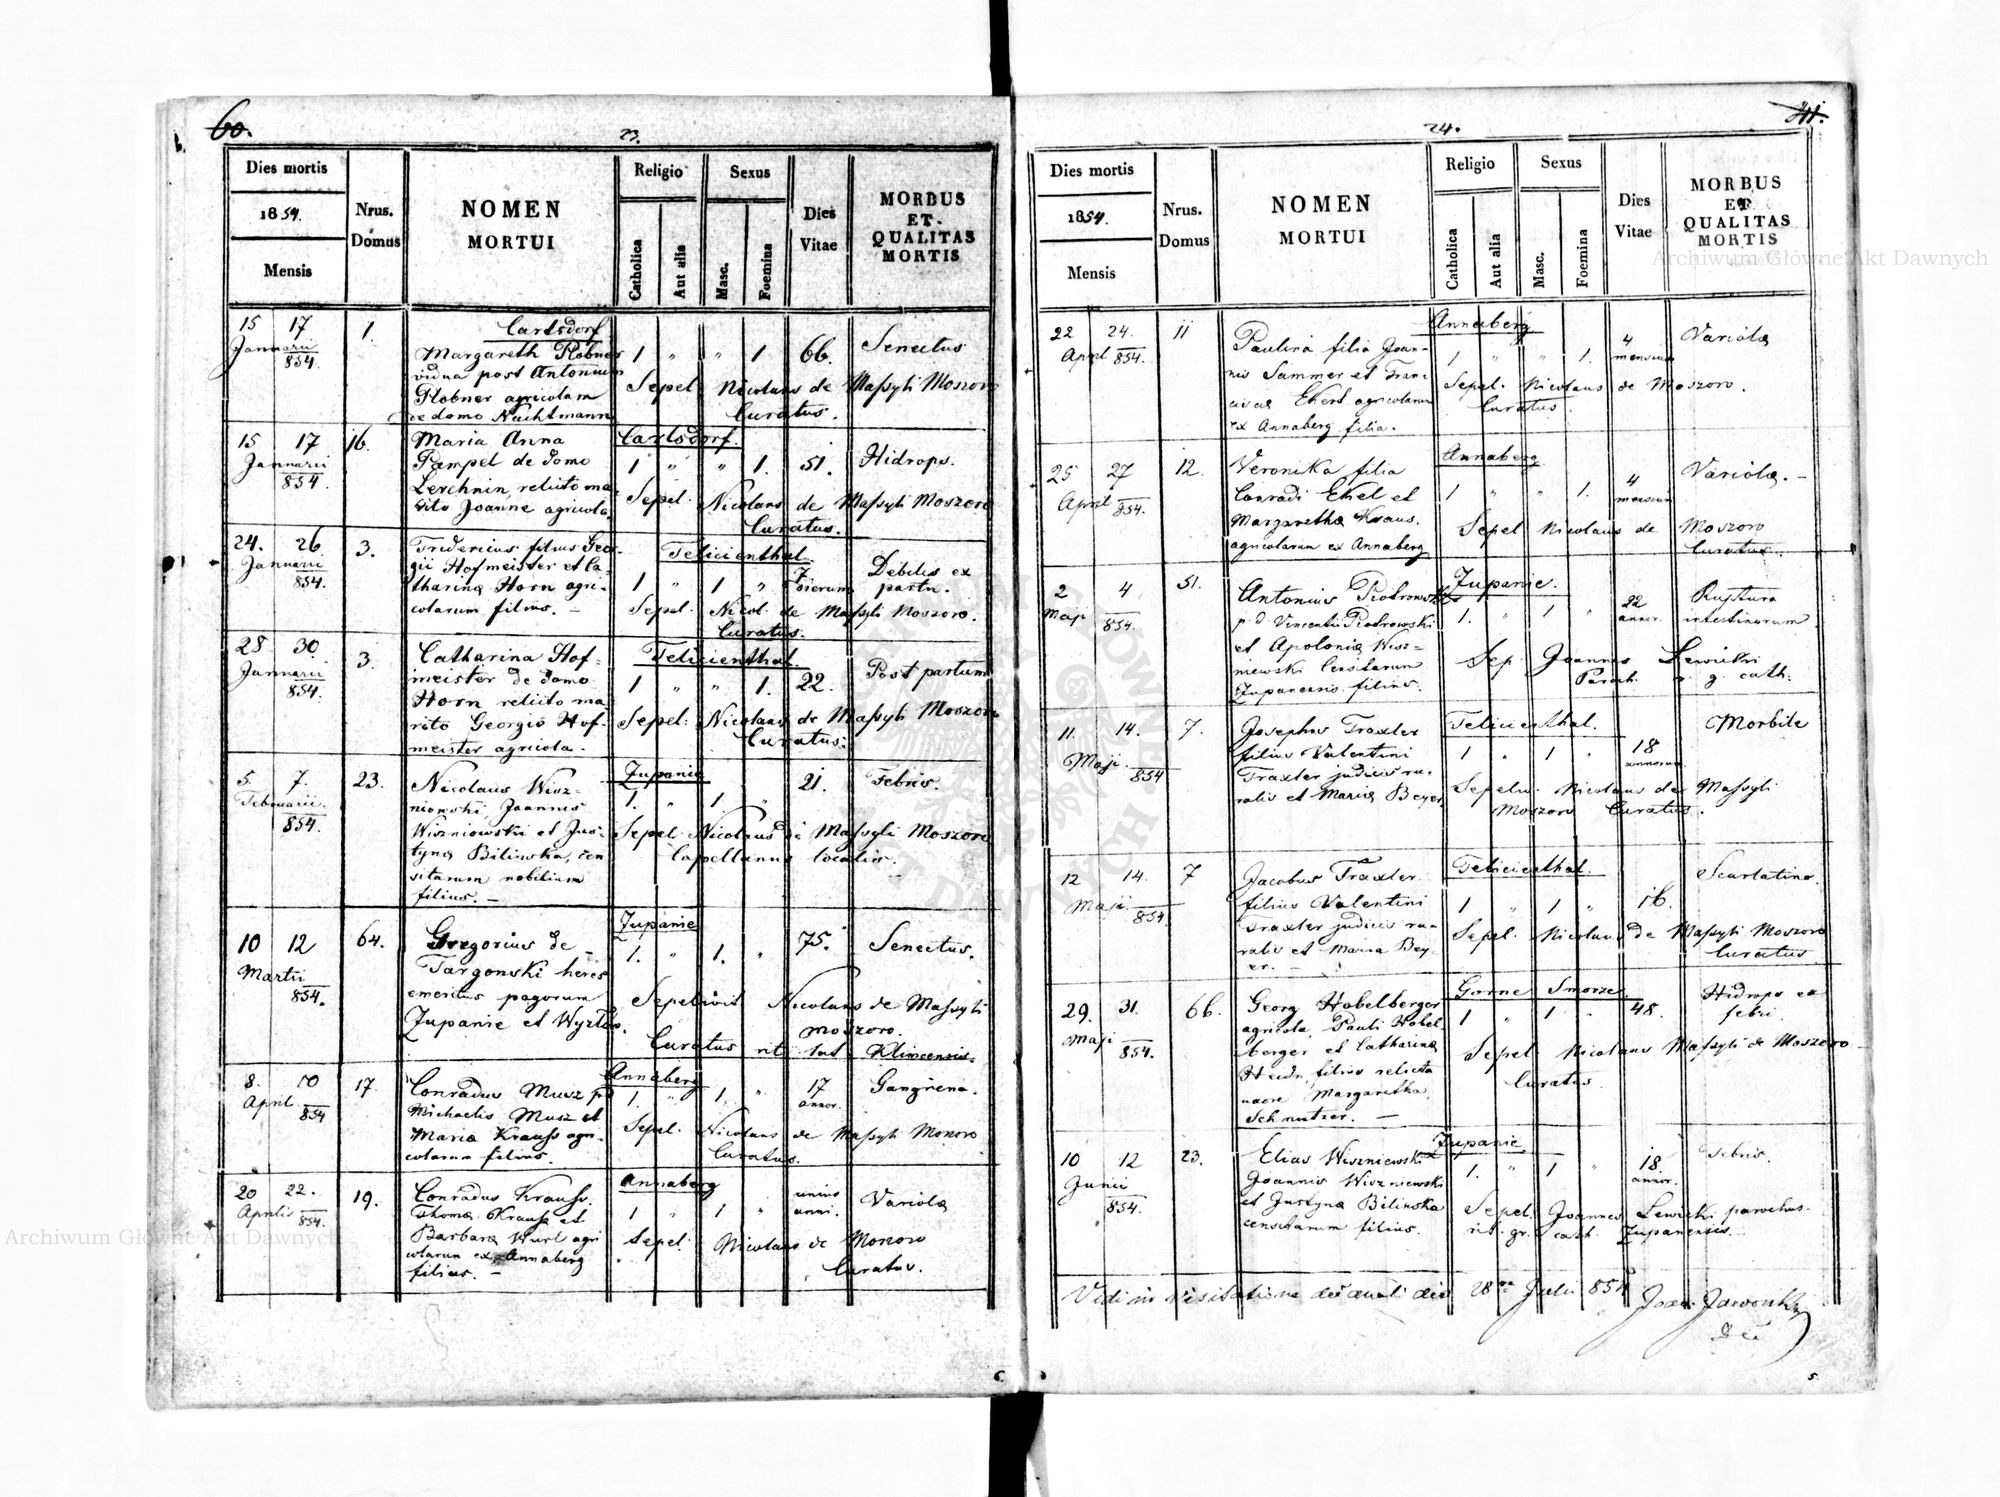 60.
23.
Dies mortis
1854.
Mensis
Nrus.
Domus
NOMEN
MORTUI
Religio
Catholica
Aut alia
Sexus
Masc.
Foemina
Dies
Vitae
MORBUS
ET
QUALITAS
MORTIS
15 17 1. Carlsdorf
Januarii 854. Margareth Plobner 1 " " 1 66. Senectus
vidua post Antonium Sepel Nicolaus de Massyli Moszoro
Plobner agricolam Curatus.
de domo Nachtmann
15 17 16. Maria Anna Carlsdorf.
Januarii 854. Pampel de domo 1 " " 1. 51. Hidrops.
Lerchnin, relicto ma- Sepel. Nicolaus de Massyli Moszoro
rito Joanne agricola. Curatus.
24. 26. 3. Fridericus filius Geor- Felicienthal.
Januarii 854. gii Hofmeister et Ca- 1 " 1 " 7 dierum Debilis ex
tharina Horn agri- partu.
colarum filius. - Sepel. Nicol. de Massyli Moszoro.
Curatus.
28 30. 3. Catharina Hof- Felicienthal.
Januarii 854. meister de domo 1 " " 1. 22. Post partum
Horn relicto ma-
rito Georgio Hof- Sepel. Nicolaus de Massyli Moszoro
meister agricola. Curatus.
5. 7. 23. Nicolaus Wisz- Zupanie 21. Febris.
Februarii. 854. niowski, Joannis 1. " 1 "
Wiszniowski et Jus- Sepel. Nicolaus de Massyli Moszoro
tyna Bilinska, cen- Capellanus localis.
sitarum nobilium
filius. -
10 12 64. Gregorius de Zupanie 75. Senectus.
Martii 854. Targonski heres 1. " 1. "
emeritus pagorum Sepelivit Nicolaus de Massyli
Zupanie et Wyzlow. Moszoro.
Curatus rit. lat. Klimcensis.
8. 10 17. Conradus Musz Annaberg 17 Gangrena.
April 854 Michaelis Musz et 1. " 1 " annor.
Maria Krauss agri- Sepel. Nicolaus de Massyli Monoro
colarum filius. Curatus.
20 22. 19. Conradus Krauss. Annaberg unius Variola
Aprilis 854. Thoma Krauss et 1 " 1 " anni.
Barbara Wurl agri Sepel. Nicolaus de Monoro
colarum ex Annaberg Curatus.
filius. -
24.
Dies mortis
1854.
Mensis
Nrus.
Domus
NOMEN
MORTUI
Religio
Catholica
Aut alia
Sexus
Masc.
Foemina
Dies
Vitae
MORBUS
ET
QUALITAS
MORTIS
22 24. 11 Annaberg
April 854. Paulina filia Joan- 1 " " 1. 4 mensium Variola
nis Sammer et Fran- Sepel. Nicolaus de Moszoro.
cisca Ekert agricolarum Curatus.
ex Annaberg filia.
25 27 12. Veronika filia Annaberg
April 854. Conradi Ekel et 1 " " 1. 4 mensium Variola. -
Margaretha Kraus. Sepel Nicolaus de Moszoro
agricolarum ex Annaberg Curatus.
2 4 51. Antonius Piotrowski Zupanie.
Maji 854. p. d. Vincentii Piotrowski 1. " 1 " 22 annor. Ruptura
et Apolonia Wisz- intestinorum
niewski Censitarum Sep. Joannes Lewicki
Zupanensis filius. Paroch. r. g. cath.
11. 14. 7. Josephus Traxler Felicienthal. Morbile
Maji 854 filius Valentini 1 " 1 " 18 annorum
Traxler judicis ru- Sepelu. Nicolaus de Massyli
ralis et Maria Beyer. Moszoro Curatus.
12 14. 7 Jacobus Traxler Felicienthal. Scarlatina.
Maji 854 filius Valentini 1 " 1 " 16.
Traxler judicis ru- Sepel. Nicolaus de Massyli Moszoro
ralis et Maria Bey- Curatus
er. -
29. 31. 66. Georg Habelberger Gorne Smorze 48. Hidrops ex
Maji 854. agricola, Pauli Habel- 1 " 1 " febri.
berger et Catharina Sepel. Nicolaus Massyli de Moszoro
Heidn, filius relicta Curatus.
uxore Margaretha
Schnutzer. -
10 12 23. Elias Wiszniewski Zupanie 18. annor. Febris.
Junii 854. Joannis Wiszniewski 1. " 1 "
et Justyna Bilinska Sepel. Joannes Lewicki parochus
censitarum filius. rit. gr. cath. Zupanensis.
Vidi in visitatione decanali die 28va Julii 854
5
Archiwum Główne Akt Dawnych
Archiwum Główne Akt Dawnych